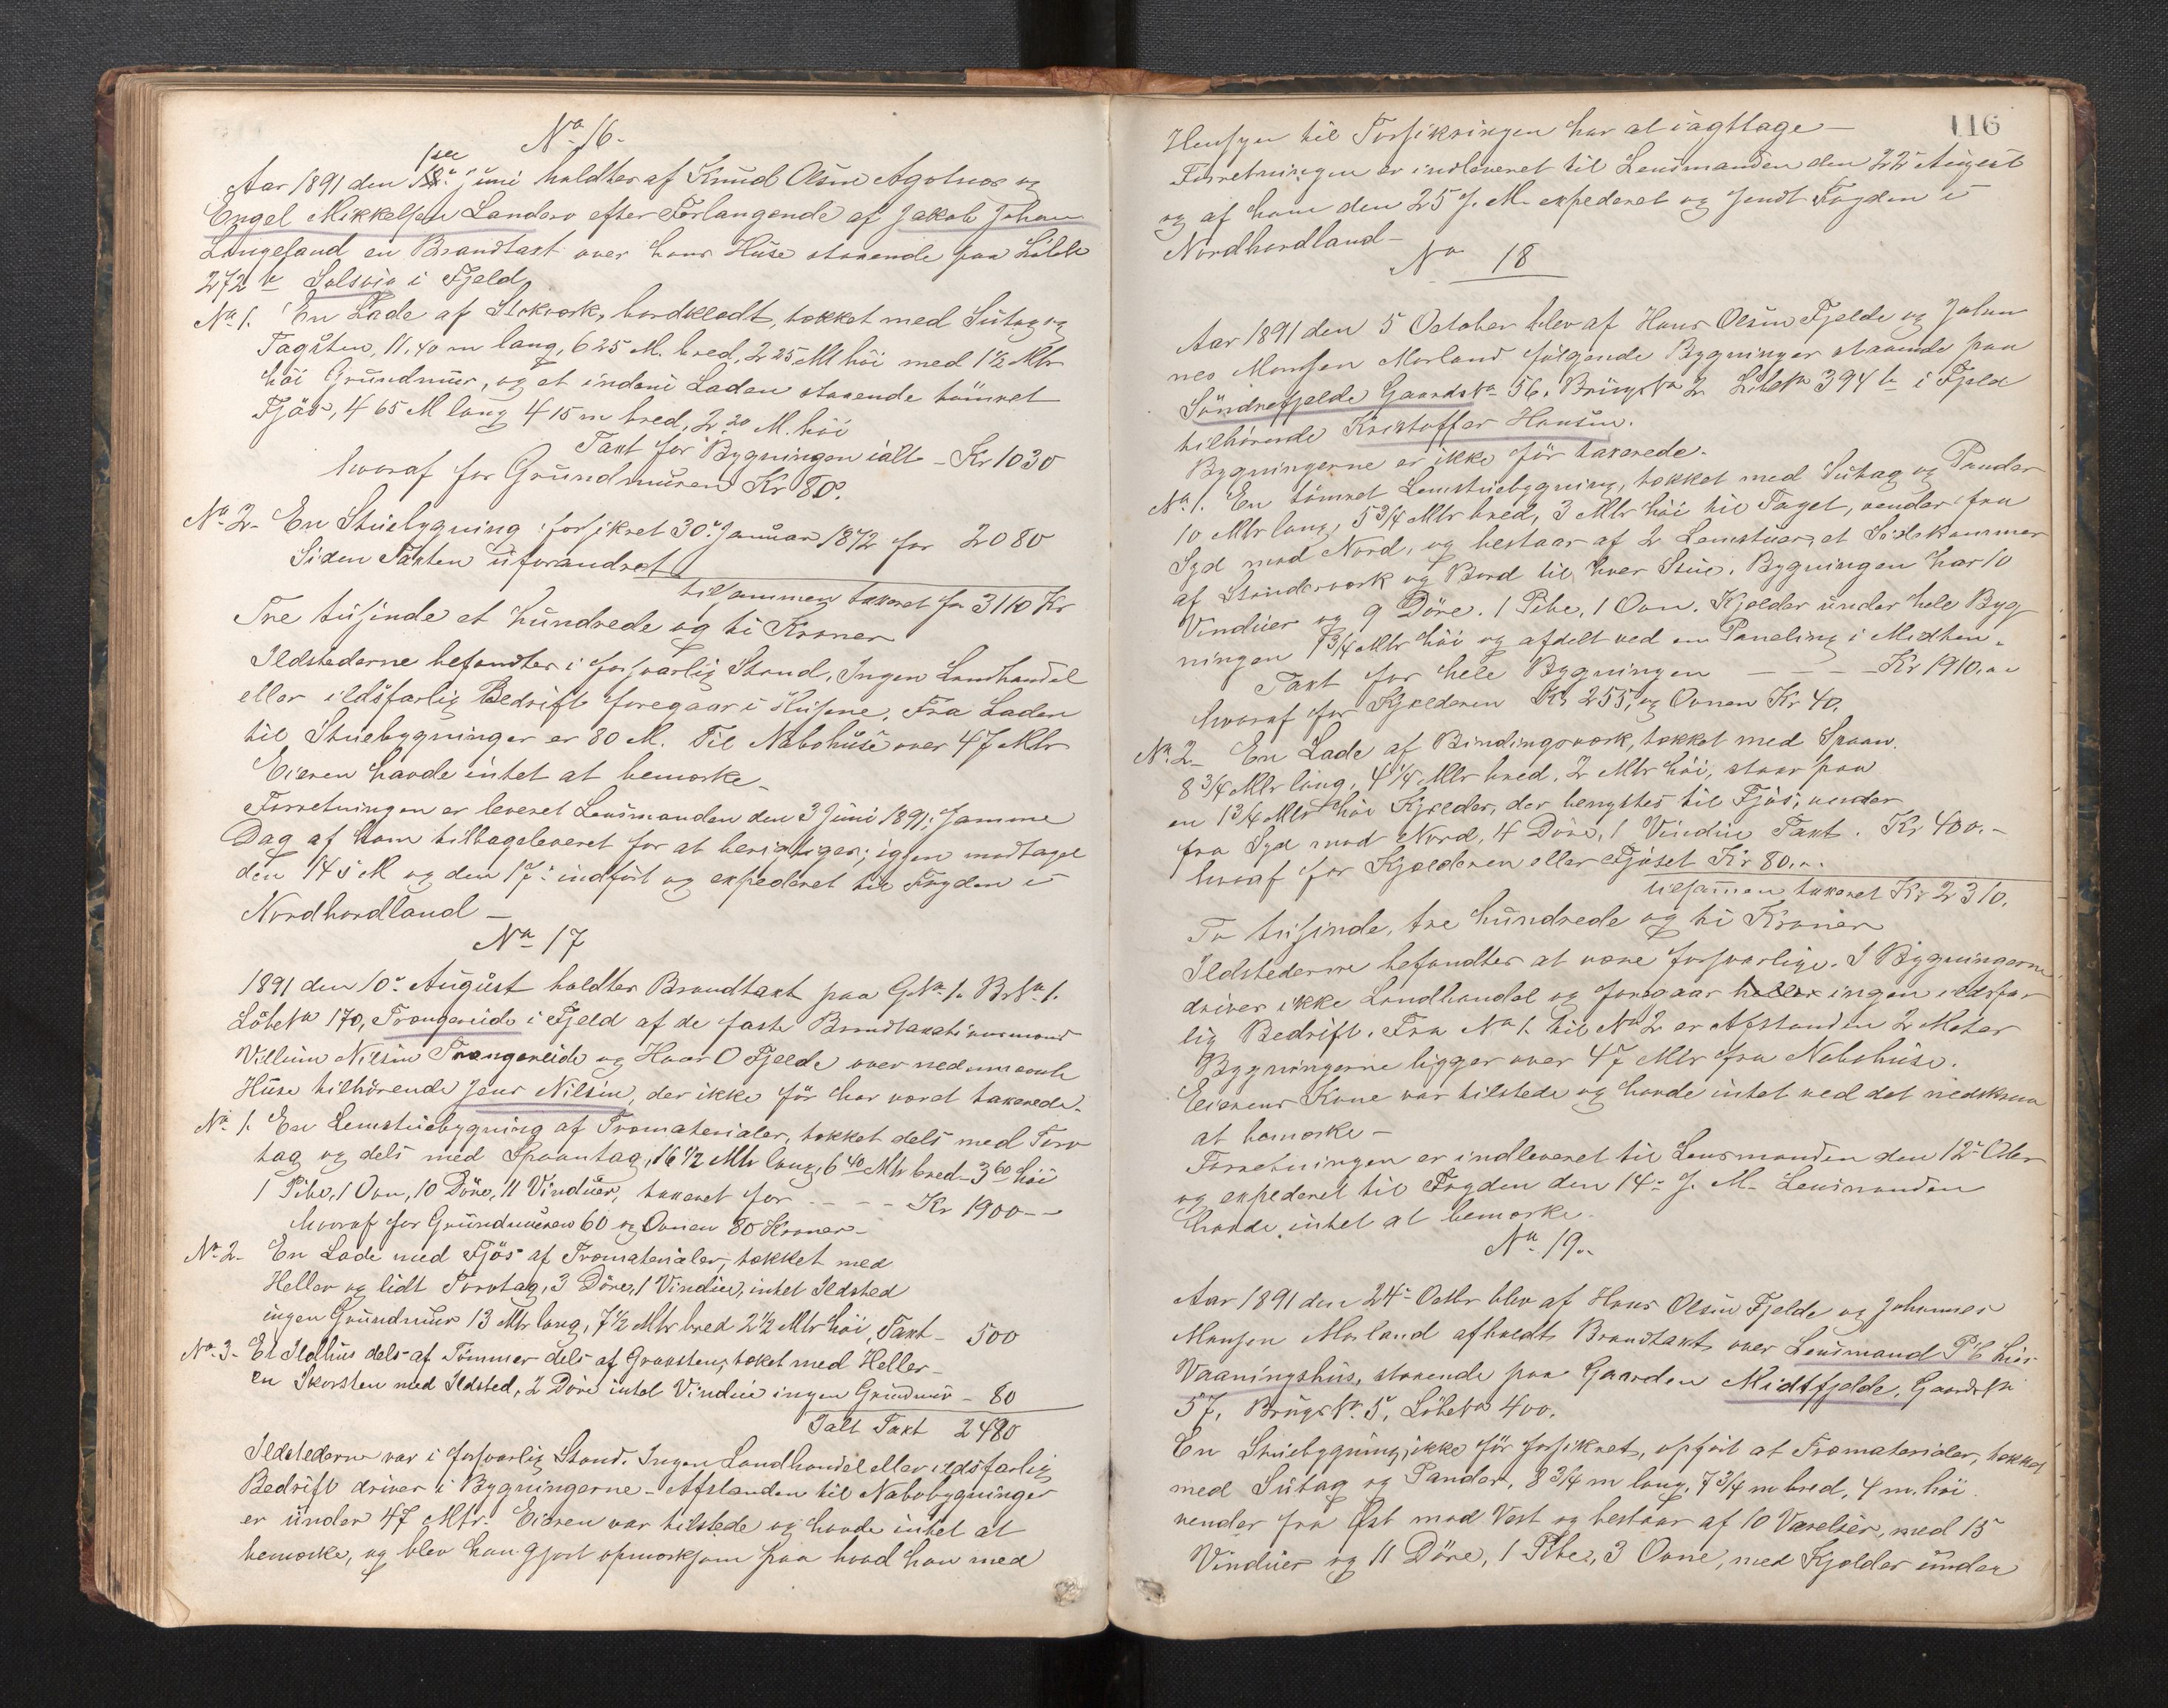 No 16.
1ste
Aar 1891 den Juni holdtes af Knud Olsen Agotnes og
Engel Mikkelsen Landero efter Forlangende af Jakob Johan
Langesund en Brandtaxt over hans Huse staaende paa Löbek
272 b Solsvig i Fjeld
No 1. En Lade af Stokværk, bordklædt, tækket med Sutag og
Tagsten, 11,40 m lang, 6 25 M. bred, 2 25 M höi med 1 1/2 Mtr
höi Grundmur, og et indeni Laden staaende tömret
Fjös, 4 65 M lang 4 15 m bred, 2 20 M. höi
Taxt for Bygningen ialt - Kr 1030
hvoraf for Grundmuren Kr 80.
No 2- En Stuebygning forsikret 30. Januar 1872 for 2080
Siden Taxten uforandret
tilsammen taxeret for 3110 Kr
Tre tusinde et hundrede og ti Kroner
Ildstederne befandtes i forsvarlig Stand, Ingen Landhandel
eller ildsfarlig Bedrift foregaar i Husene. Fra Laden
til Stuebygninger er 80 M. Til Nabohuse over 47 Mtr
Eieren havde intet at bemærke-
Forretningen er leveret Lensmanden den 3 Juni 1891, samme
Dag af ham tilbageleveret for at berigtiges; igjen modtaget
den 14 s M og den 17. indfört og expederet til Fogden i
Nordhordland-
No 17
1891 den 10. August holdtes Brandtaxt paa G.No 1. BrNo 1.
LöbeNo 170, Trængereide i Fjeld af de faste Brandtaxationsmænd
Villum Nilsen Trængereide og Haar O Fjelde over nedennævnte
Huse tilhörende Jens Nilsen, der ikke för har været taxerede.
No 1. En Lemstuebygning af Træmaterialer, tækket dels med Torv
tag og dels med Spaantag, 16 1/2 Mtr lang, 6 40 Mtr bred - 3 60 höi
1 Pibe, 1 Ovn, 10 Döre, 11 Vinduer, taxeret for - - - Kr 1900--
hvoraf for Grundmuren 60 og Ovnen 80 Kroner-
No 2- En Lade med Fjös af Træmaterialer, tækket med
Heller og lidt Torvtag, 3 Döre, 1 Vindue, intet Ildsted
ingen Grundmur 13 Mtr lang, 7 1/2 Mtr bred 2 1/2 Mtr höi, Taxt - 500
No 3- Et Ildhus dels af Tömmer dels af Graasten, tæket med Heller-
en Skorsten med Ildsted, 2 Döre intet Vindue ingen Grundmur - 80
Ialt Taxt 2480
Ildstederne var i forsvarlig Stand. Ingen Landhandel eller ildsfarlig
Bedrift driver i Bygningerne - Afstanden til Nabobygninger
er under 47 Mtr. Eieren var tilstede og havde intet at
bemærke, og blev han gjort opmærksom paa hvad han med
116
Hensyn til Forsikringen har at iagttage-
Forretningen er indleveret til Lensmanden den 22. August
og af ham den 25 s. M. expederet og sendt Fogden i
Nordhordland-
No 18
Aar 1891 den 5 October blev af Hans Olsen Fjelde og Johan
nes Monsen Morland fölgende Bygninger staaende paa
Söndrefjelde GaardsNo 56. BrugsNo 2. LöbeNo 394 b i Fjeld
tilhörende Kristoffer Hansen.
Bygningerne er ikke för taxerede.
No 1. En tömret Lemstuebygning, tækket med Sutag og Pander
10 Mtr lang, 5 3/4 Mtr bred, 3 Mtr höi til Taget, vender fra
Syd mod Nord, og bestaar af 2 Lemstuer, et Sidekammer
af Standerværk og Bord til hver Stue. Bygningen har 10
Vinduer og 9 Döre. 1 Pibe, 1 Ovn. Kjælder under hele Byg
ningen 1 3/4 Mtr höi og afdelt ved en Paneling i Midten.
Taxt for hele Bygningen - - - Kr 1910.
hvoraf for Kjælderen Kr 255, og Ovnen Kr 40.
No 2- En Lade af Bindingsværk, tækket med Spaan.
8 3/4 Mtr lang, 4 1/4 Mtr bred. 2 Mtr höi, staar paa
en 1 3/4 Mtr höi Kjælder, der benyttes til Fjös, vender
fra Syd mod Nord, 4 Döre, 1 Vindue Taxt. Kr 400.-
hvoraf for Kjælderen eller Fjöset Kr 80.
tilsammen taxeret Kr 2310.
To tusinde, tre hundrede og ti Kroner
Ildstederne befandtes at være forsvarlige. I Bygningerne
driver ikke Landhandel og foregaar heller ingen ildsfar
lig Bedrift. Fra No 1. til No 2 er Afstanden 2 Meter
Bygningerne ligger over 47 Mtr fra Nabohuse.
Eierens Kone var tilstede og havde intet ved det nedskrevne
at bemærke-
Forretningen er indleveret til Lensmanden den 12. Otbr
og expederet til Fogden den 14. s. M. Lensmanden
havde intet at bemærke.
No 19.
Aar 1891 den 24. Octbr blev af Hans Olsen Fjelde og Johannes
Monsen Morland afholdt Brandtaxt over Lensmand P C Lies
Vaaningshus, staaende paa Gaarden Midtfjelde, GaardsNo
57. BrugsNo 5, LöbeNo 400.
En Stuebygning, ikke för forsikret, opfört af Træmaterialer, tækket
med Sutag og Pander, 8 3/4 m lang, 7 3/4 m bred, 4 m. höi.
vender fra Öst mod Vest og bestaar af 10 Værelser, med 15
Vinduer og 11 Döre, 1 Pibe, 3 Ovne, med Kjælder under